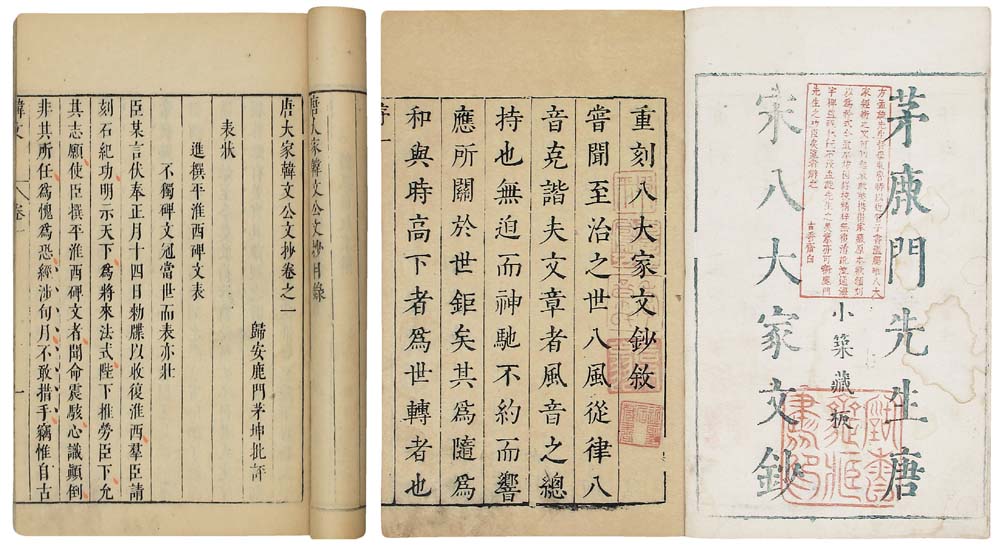 茅鹿門先生唐
小築藏板
宋八大家文鈔
重刻八大家文鈔敘
嘗聞至治之世八風從律八
音克諧夫文章者風音之總
持也無迫而神馳不約而響
應所關於世鉅矣其爲隨爲
和與時高下者爲世轉者也
序 一
唐大家韓文公文抄目錄
唐大家韓文公文抄卷之一
歸安鹿門茅坤批評
表狀
進撰平淮西碑文表
不獨碑文冠當世而表亦壯
臣某言伏奉正月十四日勑牒以收復淮西羣臣請
刻石紀功明示天下爲將來法式陛下推勞臣下允
其志願使臣撰平淮西碑文者聞命震駭心識顛倒
非其所任爲愧爲恐經涉旬月不敢措手竊惟自古
韓文 卷一 一